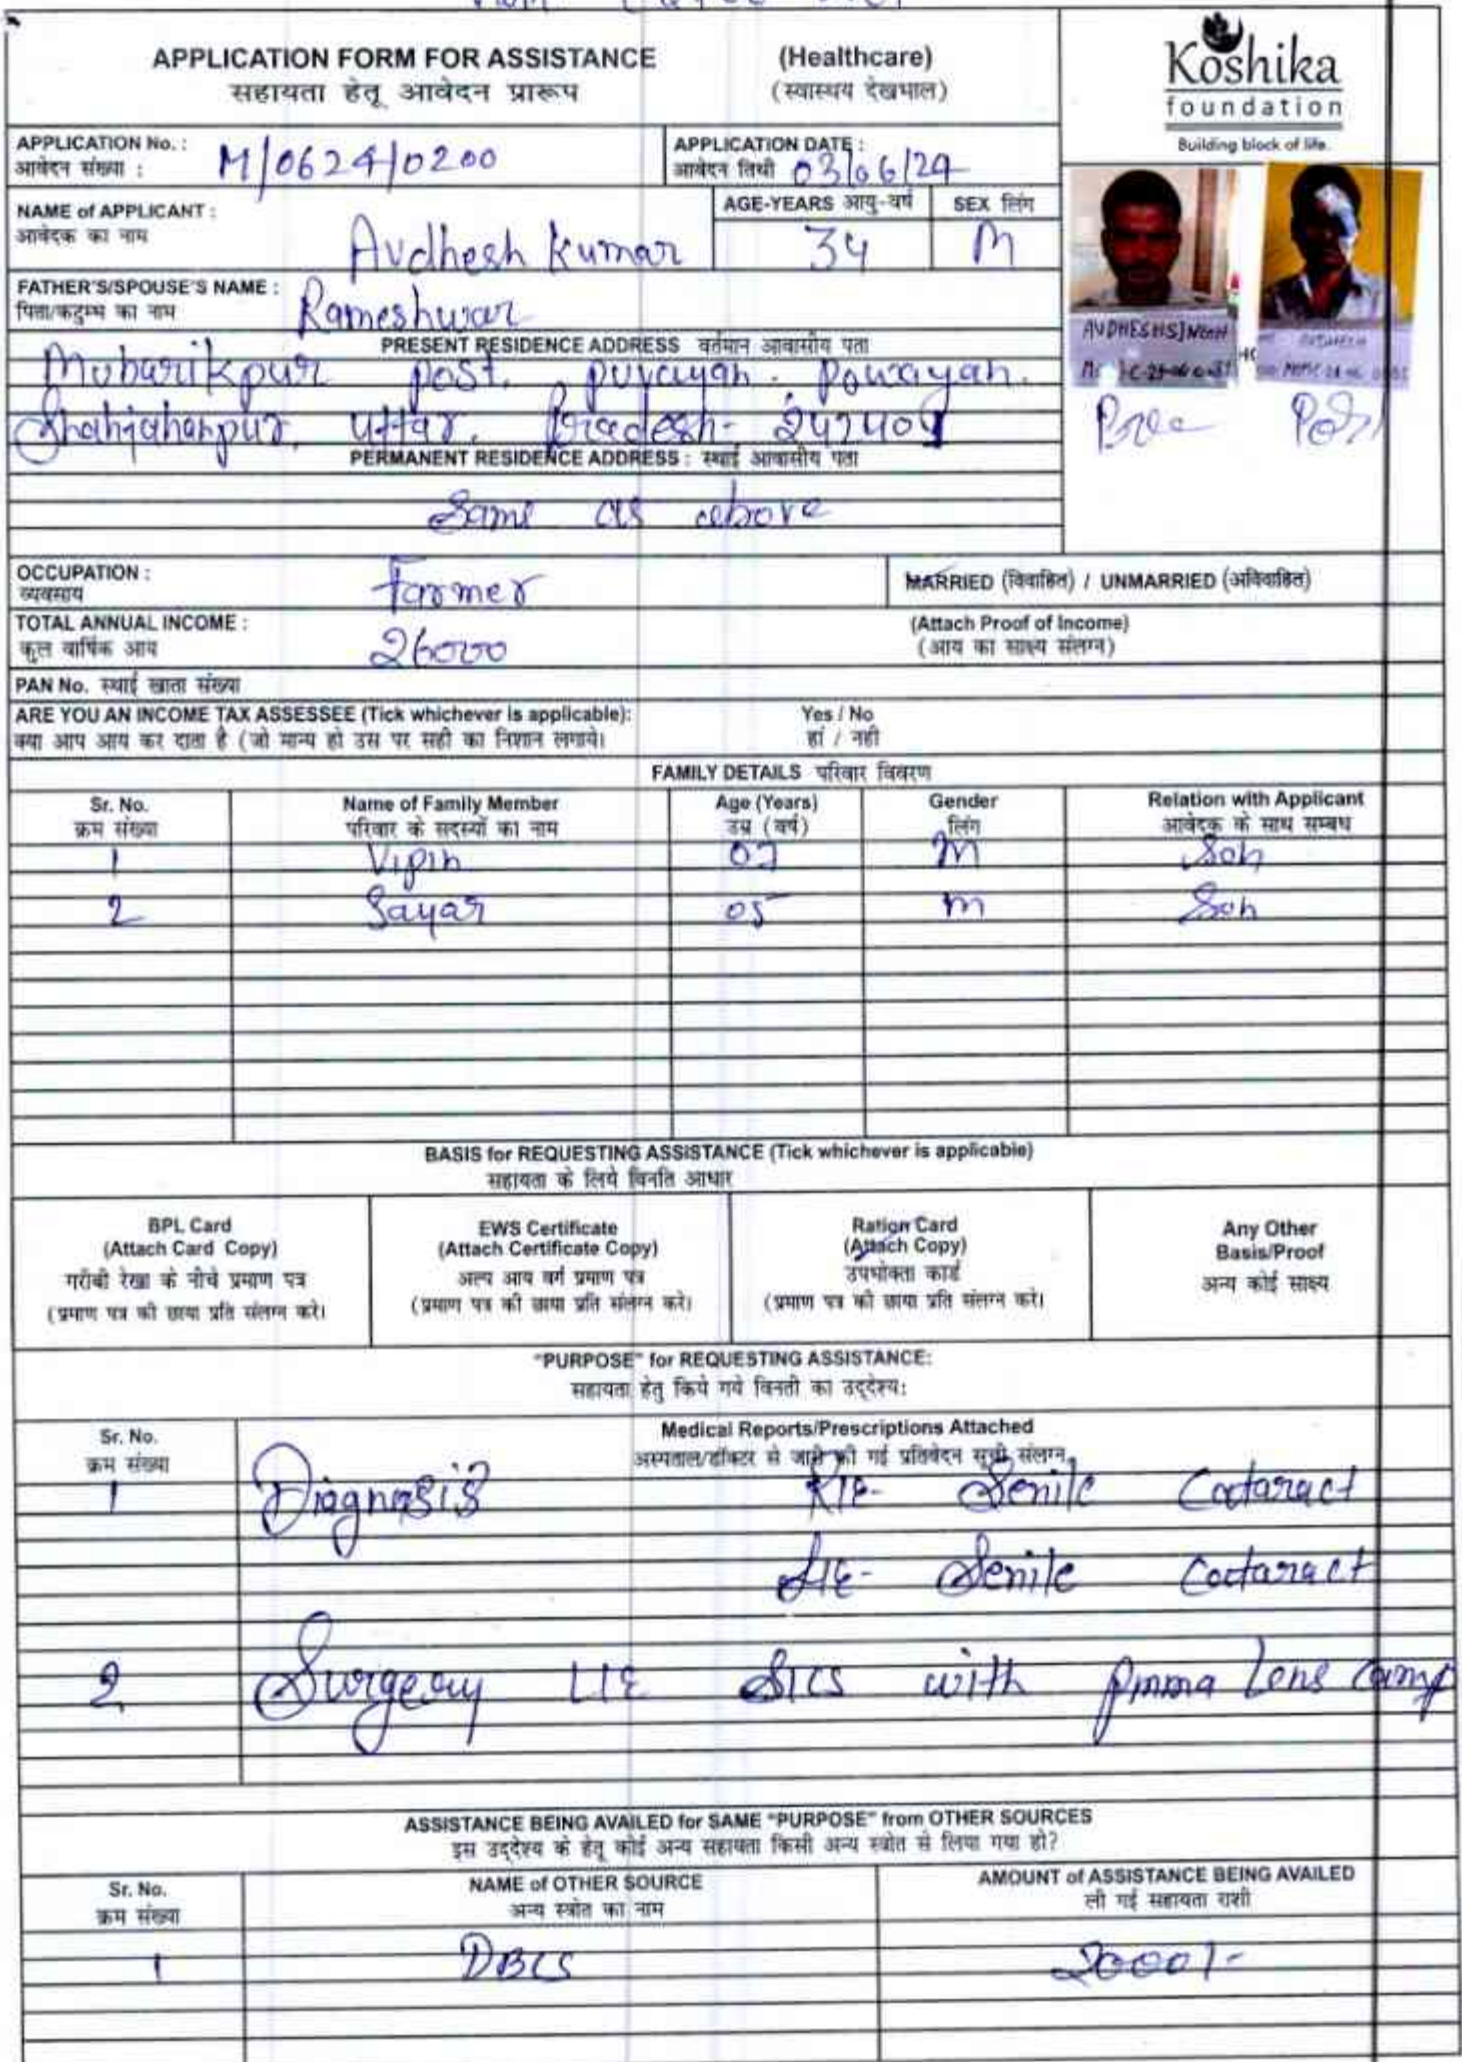 APPLICATION FORM FOR ASSISTANCE (Healthcare)
सहायता हेतू आवेदन प्रारूप (स्वास्थय देखभाल)
Koshika
foundation
Building block of life.
APPLICATION No. :
आवेदन संख्या : M/0624/0200
APPLICATION DATE :
आवेदन तिथी 03/06/24
NAME of APPLICANT :
आवेदक का नाम Avdhesh Kumar
AGE-YEARS आयु-वर्ष
34
SEX लिंग
M
FATHER'S/SPOUSE'S NAME :
पिता/कटुम्भ का नाम Rameshwar
AVDHESHSINGH
PRESENT RESIDENCE ADDRESS वर्तमान आवासीय पता
Mubarikpur post. puvayan. Powayan.
Shahjahanpur, Uttar, Pradesh- 242401
PERMANENT RESIDENCE ADDRESS : स्थाई आवासीय पता
Same as above
OCCUPATION :
व्यवसाय Farmer
MARRIED (विवाहित) / UNMARRIED (अविवाहित)
TOTAL ANNUAL INCOME :
कुल वार्षिक आय 26000
(Attach Proof of Income)
(आय का साक्ष्य संलग्न)
PAN No. स्थाई खाता संख्या
ARE YOU AN INCOME TAX ASSESSEE (Tick whichever is applicable): Yes / No
क्या आप आय कर दाता है (जो मान्य हो उस पर सही का निशान लगाये। हां / नही
FAMILY DETAILS परिवार विवरण
Sr. No. Name of Family Member Age (Years) Gender Relation with Applicant
क्रम संख्या परिवार के सदस्यों का नाम उम्र (वर्ष) लिंग आवेदक के साथ सम्बध
1 Vipin 07 M Son
2 Sayar 05 M Son
BASIS for REQUESTING ASSISTANCE (Tick whichever is applicable)
सहायता के लिये विनति आधार
BPL Card
(Attach Card Copy)
गरीबी रेखा के नीचे प्रमाण पत्र
(प्रमाण पत्र की छाया प्रति संलग्न करे।
EWS Certificate
(Attach Certificate Copy)
अल्प आय वर्ग प्रमाण पत्र
(प्रमाण पत्र की छाया प्रति संलग्न करे।
Ration Card
(Attach Copy)
उपभोक्ता कार्ड
(प्रमाण पत्र की छाया प्रति संलग्न करे।
Any Other
Basis/Proof
अन्य कोई साक्ष्य
"PURPOSE" for REQUESTING ASSISTANCE:
सहायता हेतु किये गये विनती का उद्देश्य:
Sr. No. Medical Reports/Prescriptions Attached
क्रम संख्या अस्पताल/डॉक्टर से जारी की गई प्रतिवेदन सूची संलग्न
1 Diagnosis R/E- Senile Cataract
L/E- Senile Cataract
2 Surgery L/E SICS with Pmma Lens Camp
ASSISTANCE BEING AVAILED for SAME "PURPOSE" from OTHER SOURCES
इस उद्देश्य के हेतू कोई अन्य सहायता किसी अन्य स्त्रोत से लिया गया हो?
Sr. No. NAME of OTHER SOURCE AMOUNT of ASSISTANCE BEING AVAILED
क्रम संख्या अन्य स्त्रोत का नाम ली गई सहायता राशी
1 DBCS 2000/-